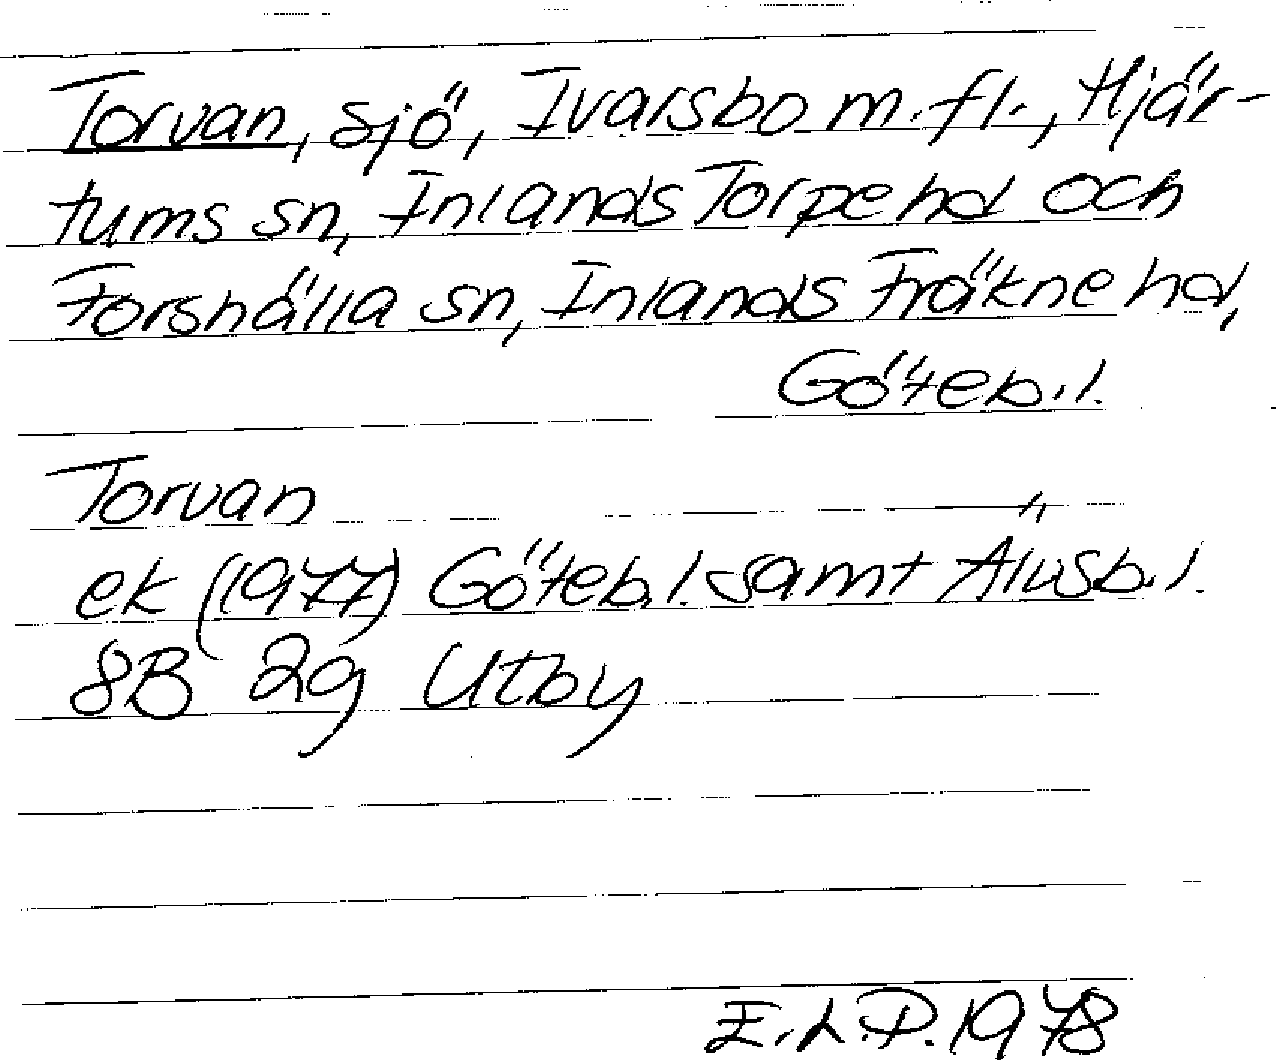 Torvan, sjö, Ivarsbo m.fl., Hjär-
tums sn, Inlands Torpe hd och
Forshälla sn, Inlands Fräkne hd,
Göteb.l.
Torvan
ek (1977) Göteb.l. samt Älvsb.l.
8B 2g Utby
E.L.P. 1978